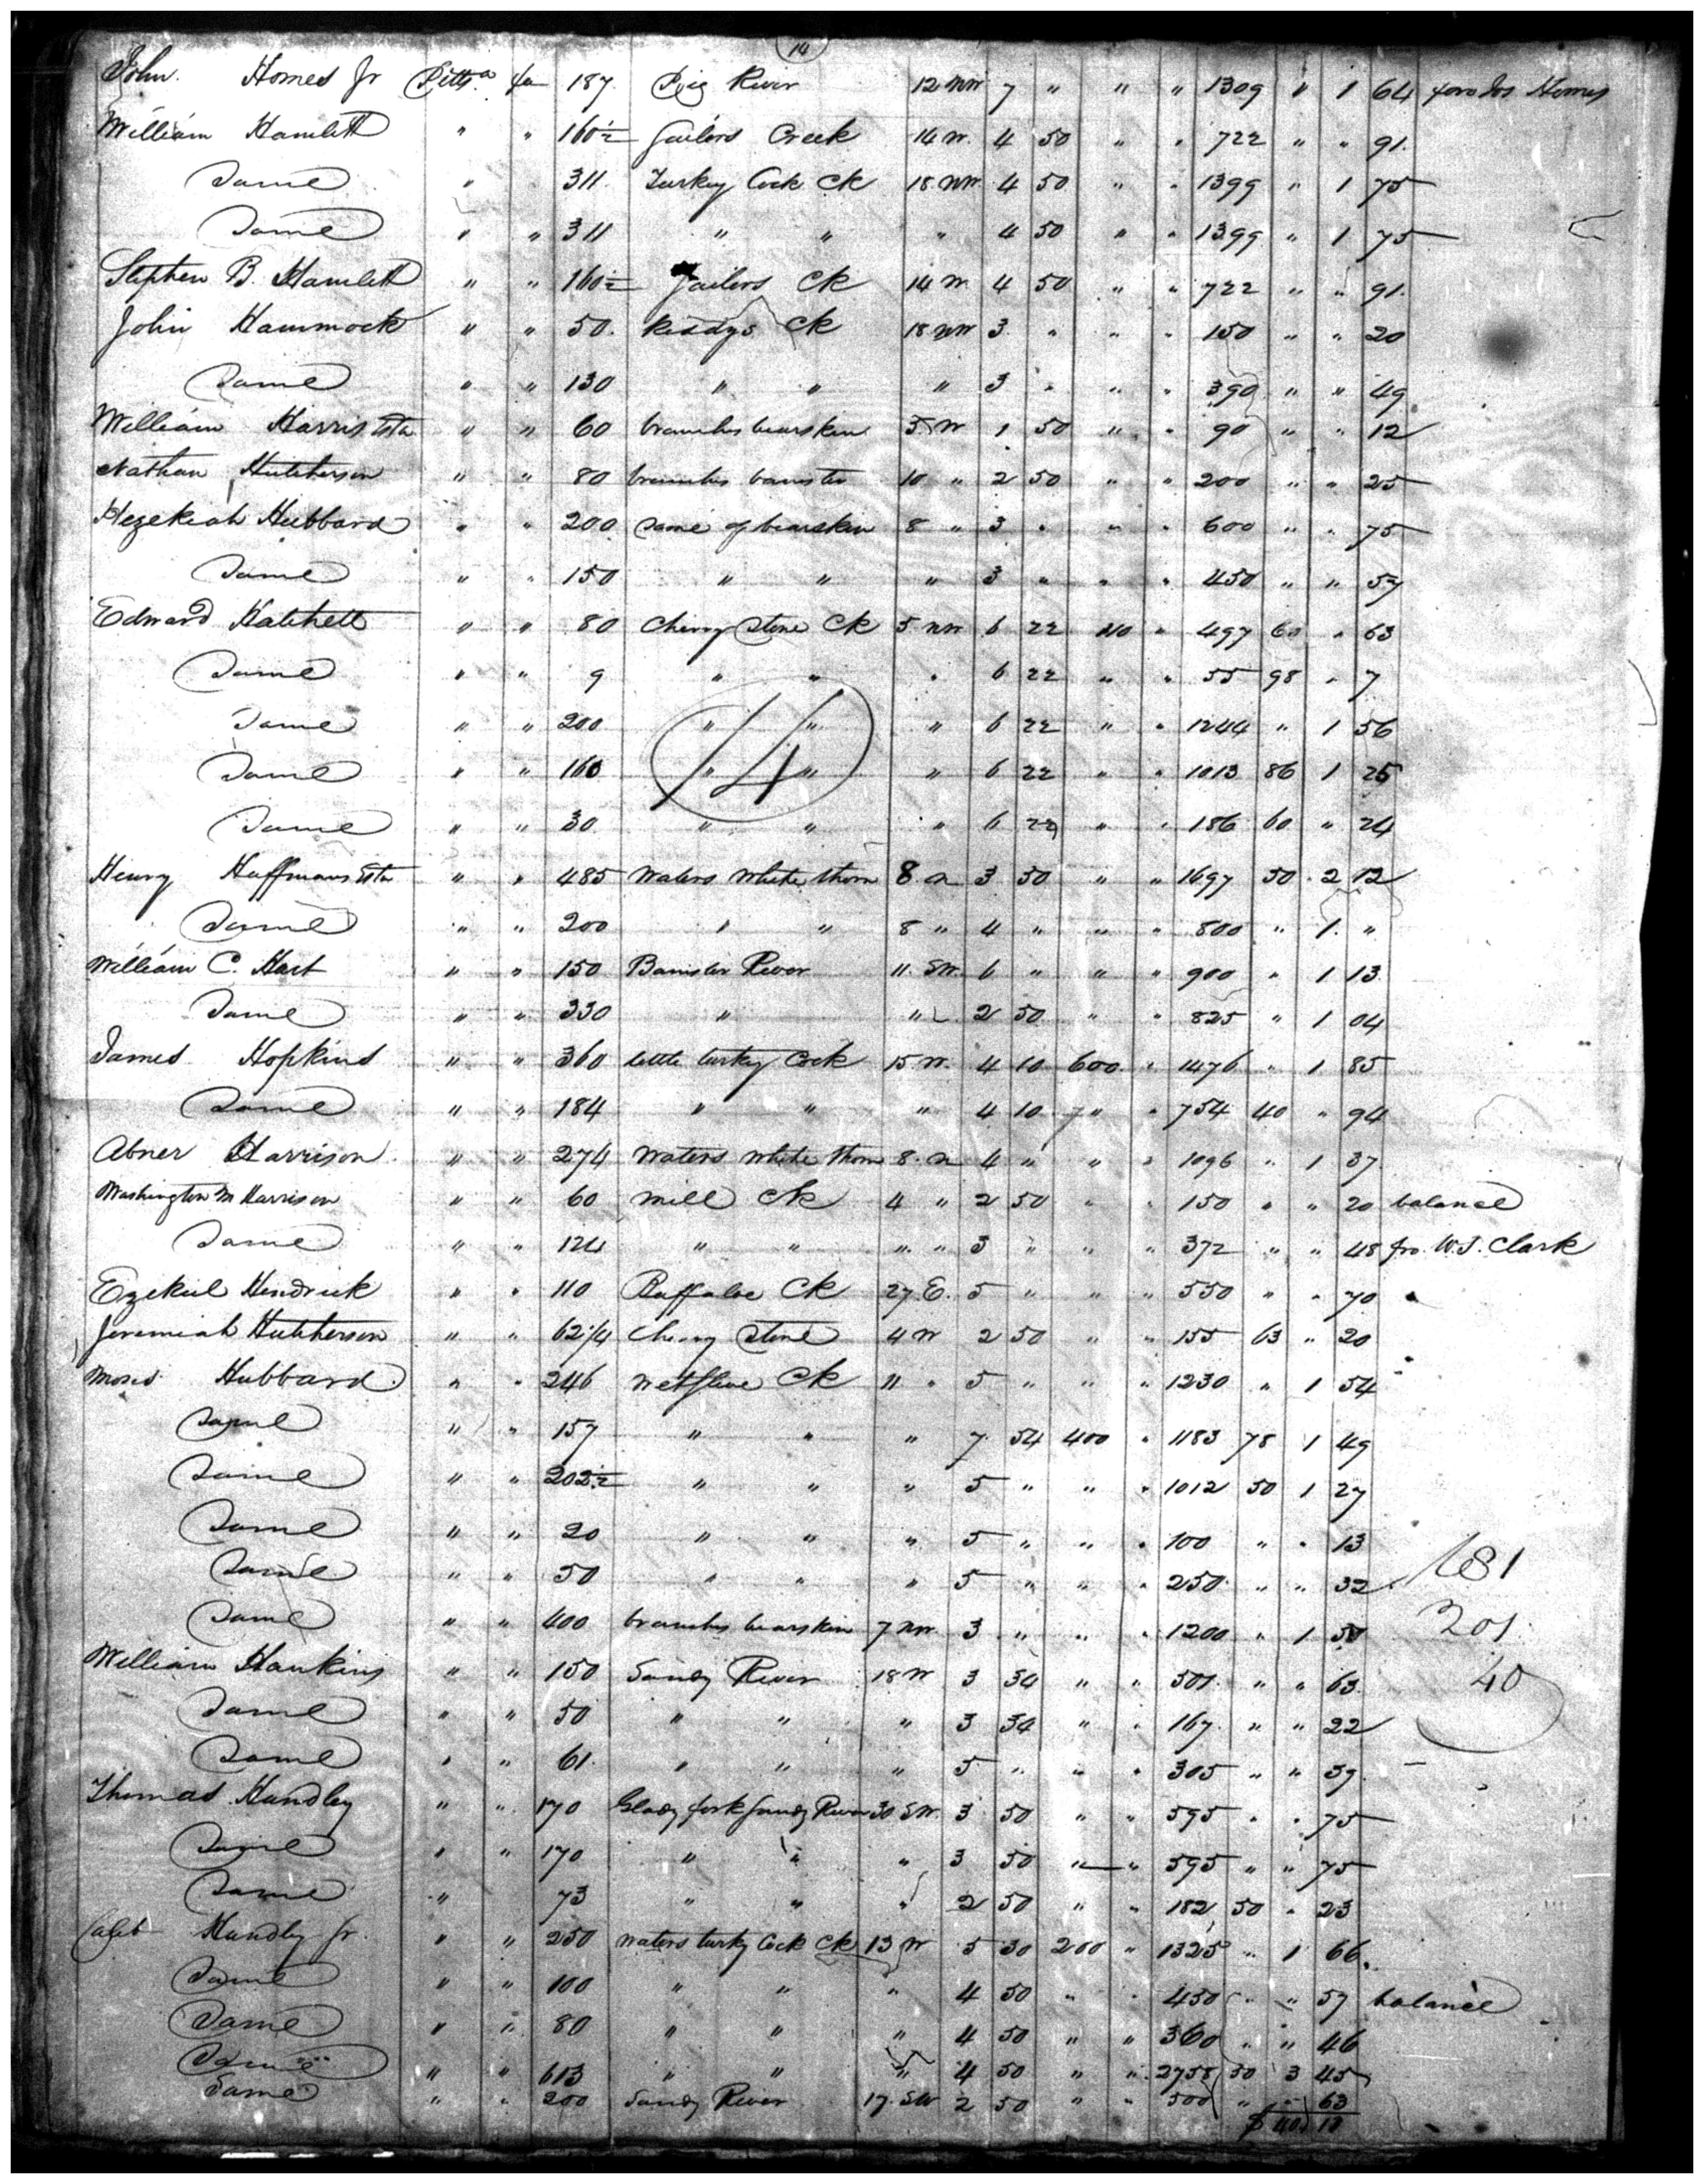 14
John Homes Jr Pittsa fee 187 Pig River 12 NW 7 " " " 1309 " 1 64 from Jos Homes
William Hamlett " " 160½ Jailors Creek 14 W. 4 50 " " 722 " " 91.
Same " " 311. Turkey Cock Ck 18 NW 4 50 " " 1399 " 1 75
Same " " 311 " " " 4 50 " " 1399 " 1 75
Stephen B. Hamlett " " 160½ Jailors Ck 14 W. 4 50 " " 722 " " 91.
John Hammock " " 50. Ck 18 NW 3 " " " 150 " " 20
Same " " 130 " " " 3 " " " 390 " " 49
William Harris Esta " " 60 branches bearskin 5 W 1 50 " " 90 " " 12
Nathan Hutcherson " " 80 branches banister 10 " 2 50 " " 200 " " 25
Hezekiah Hubbard " " 200 same of bearskin 8 " 3 " " " 600 " " 75
Same " " 150 " " " 3 " " " 450 " " 57
Edward Hatchett " " 80 Cherry Stone Ck 5 NW 6 22 210 " 497 60 " 63
Same " " 9 " " " 6 22 " " 55 98 " 7
Same " " 200 " " " 6 22 " " 1244 " 1 56
14
Same " " 163 " " " 6 22 " " 1013 86 1 25
Same " " 30 " " " 6 22 " " 186 60 " 24
Henry Huffmans Esta " " 485 Waters White thorn 8 N 3 50 " " 1697 50 " 2 12
Same " " 200 " " 8 " 4 " " " 800 " 1. "
William C. Hart " " 150 Banister River 11. SW. 6 " " " 900 " 1 13.
Same " " 330 " " 2 50 " " 825 " 1 04
James Hopkins " " 360 little turkey Cock 15. W. 4 10 600 " 1476 " 1 85
Same " " 184 " " " 4 10 " " 754 40 " 94
Abner Harrison " " 274 Waters White thorn 8. N 4 " " " 1096 " 1 37
Washington M Harrison " " 60 Mill Ck 4 " 2 50 " " 150 " " 20 balance
Same " " 124 " " " " 3 " " " 372 " " 48 fro. W. S. Clark
Ezekiel Hendrick " " 110 Buffaloe Ck 27 E. 5 " " " 550 " " 70
Jeremiah Hutcherson " " 62¼ Cherry Stone 4 W 2 50 " " 155 63 " 20
Moses Hubbard " " 246 Wetsleve Ck 11 " 5 " " " 1230 " 1 54
Same " " 157 " " " 7 54 400 " 1183 78 1 49
Same " " 202½ " " " 5 " " " 1012 50 1 27
Same " " 20 " " " 5 " " " 100 " " 13
Same " " 50 " " " 5 " " " 250 " " 32
Same " " 400 branches bearskin 7 NW. 3 " " " 1200 " 1 50
181
201
40
William Hankins " " 150 Sandy River 18 W 3 34 " " 501 " " 63.
Same " " 50 " " " 3 34 " " 167 " " 22
Same " " 61. " " " 5 " " " 305 " " 39
Thomas Hundley " " 170 Glady fork Sandy River 30 SW. 3 50 " " 595 " " 75
Same " " 170 " " " 3 50 " " 595 " " 75
Same " 73 " " " 2 50 " " 182 50 " 23
Caleb Hundley Jr. " " 250 Waters turky Cock Ck 13 W 5 30 200 " 1325 " 1 66.
Same " " 100 " " " 4 50 " " 450 " " 57 balance
Same " " 80 " " " 4 50 " " 360 " " 46
Same " " 613 " " " 4 50 " " 2758 50 3 45
Same " " 200 Sandy River 17. SW 2 50 " " 500 " " 63
$ 40 18